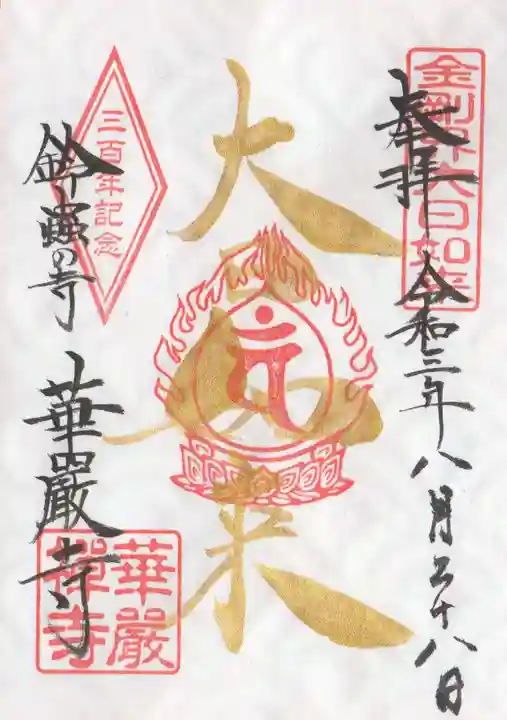 奉拝
令和三年八月二十八日
金剛界大日如来
大日如来
三百年記念
鈴虫の寺
華嚴寺
華嚴禅寺